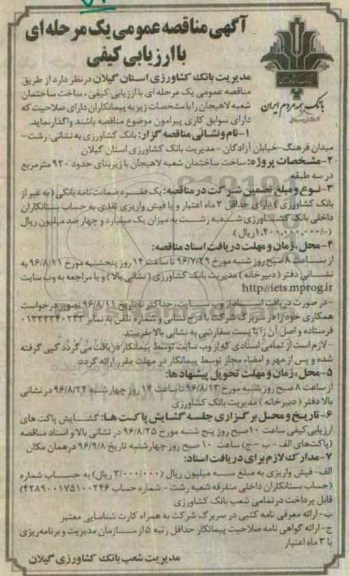 آگهی مناقصه عمومی یک مرحله ای
با ارزیابی کیفی
بانک، همه مردم ایران
مدیریت بانک کشاورزی استان گیلان در نظر دارد از طریق
مناقصه عمومی یک مرحله ای با ارزیابی کیفی، ساخت ساختمان
شعبه لاهیجان را با مشخصات زیر به پیمانکاران دارای صلاحیت که
دارای سوابق کاری پیرامون موضوع مناقصه باشند واگذار نماید.
۱- نام و نشانی مناقصه گزار: بانک کشاورزی به نشانی رشت-
میدان فرهنگ- خیابان آزادگان - مدیریت بانک کشاورزی استان گیلان
۲- مشخصات پروژه: ساخت ساختمان شعبه لاهیجان با زیربنای حدود ۹۲۰ مترمربع
در سه طبقه
۳- نوع و مبلغ تضمین شرکت در مناقصه: یک فقره ضمانت نامه بانکی (به غیر از
بانک کشاورزی) دارای حداقل ۳ ماه اعتبار و یا فیش واریزی نقدی به حساب بستانکاران
داخلی بانک کشاورزی شعبه رشت به میزان یک میلیارد و چهار صد میلیون ریال
(۱/۴۰۰/۰۰۰/۰۰۰ ریال)
۴- محل، زمان و مهلت دریافت اسناد مناقصه:
از ساعت ۸ صبح روز شنبه مورخ ۹۶/۷/۲۹ تا ساعت ۱۴ روز پنجشنبه مورخ ۹۶/۸/۱۱ به
نشانی دفتر (دبیرخانه) مدیریت بانک کشاورزی (نشانی بالا) و یا مراجعه به وب سایت
http://iets.mprog.ir
- در صورت دریافت اسناد از وب سایت، حداکثر تا تاریخ ۹۶/۸/۱۱ تصویر درخواست
همکاری خود را در سربرگ شرکت با درج نشانی و شماره تلفن به نمابر ۰۱۳۳۳۳۴۰۲۳۳
فرستاده و اصل آن را با پست سفارشی به نشانی بالا بفرستند.
- لازم است از تمامی اسنادی که از وب سایت توسط پیمانکار دریافت می گردد کپی گرفته
شده و پس از مهر و امضاء مجاز توسط پیمانکار در مهلت مقرر ارائه گردد.
۵- محل، زمان و مهلت تحویل پیشنهادها:
از ساعت ۸ صبح روز شنبه مورخ ۹۶/۸/۱۳ تا ساعت ۱۴ روز چهارشنبه ۹۶/۸/۲۴ در نشانی
بالا دفتر (دبیرخانه) مدیریت بانک کشاورزی
۶- تاریخ و محل برگزاری جلسه گشایش پاکت ها: گشایش پاکت های
ارزیابی کیفی ساعت ۱۰ صبح روز پنج شنبه مورخ ۹۶/۸/۲۵ در نشانی بالا و اسناد مناقصه
(پاکت های الف - ب - ج) ساعت ۱۰ صبح روز چهارشنبه تاریخ ۹۶/۹/۸ در همان مکان
۷- مدارک لازم برای دریافت اسناد:
الف- فیش واریزی به مبلغ سه میلیون ریال (۳/۰۰۰/۰۰۰ ریال) به حساب شماره
(حساب بستانکاران داخلی متفرقه شعبه رشت - شماره حساب ۴۲۸۹۰۰۱۷۵۱۰۰۲۴۶)
قابل پرداخت در تمامی شعب بانک کشاورزی
ب- ارائه معرفی نامه کتبی در سربرگ شرکت به همراه کارت شناسایی معتبر
ج- ارائه گواهی نامه صلاحیت پیمانکار حداقل رتبه ۵ از سازمان مدیریت و برنامه ریزی
با ۳ ماه اعتبار
مدیریت شعب بانک کشاورزی گیلان